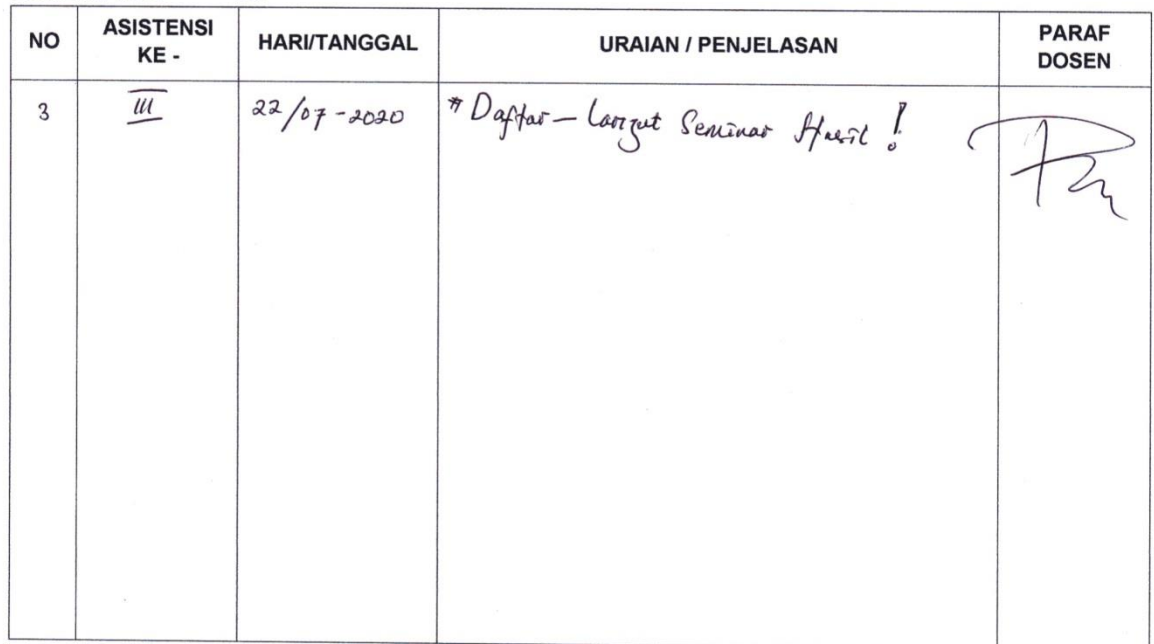 NO ASISTENSI KE - HARI/TANGGAL URAIAN / PENJELASAN PARAF DOSEN
3 III 22/07-2020 * Daftar - Lanjut Seminar Hasil !